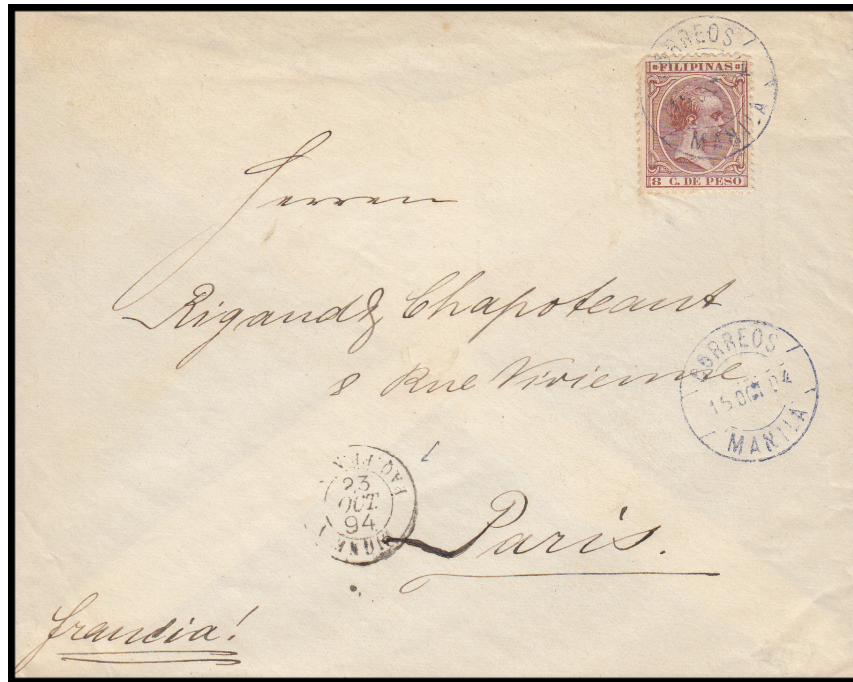 CORREOS
MANILA
FILIPINAS
8 C. DE PESO
Herren
Rigaud & Chapoteaut
8 Rue Vivienne
CORREOS
15 OCT 94
MANILA
23
OCT.
94
Paris.
Francia!